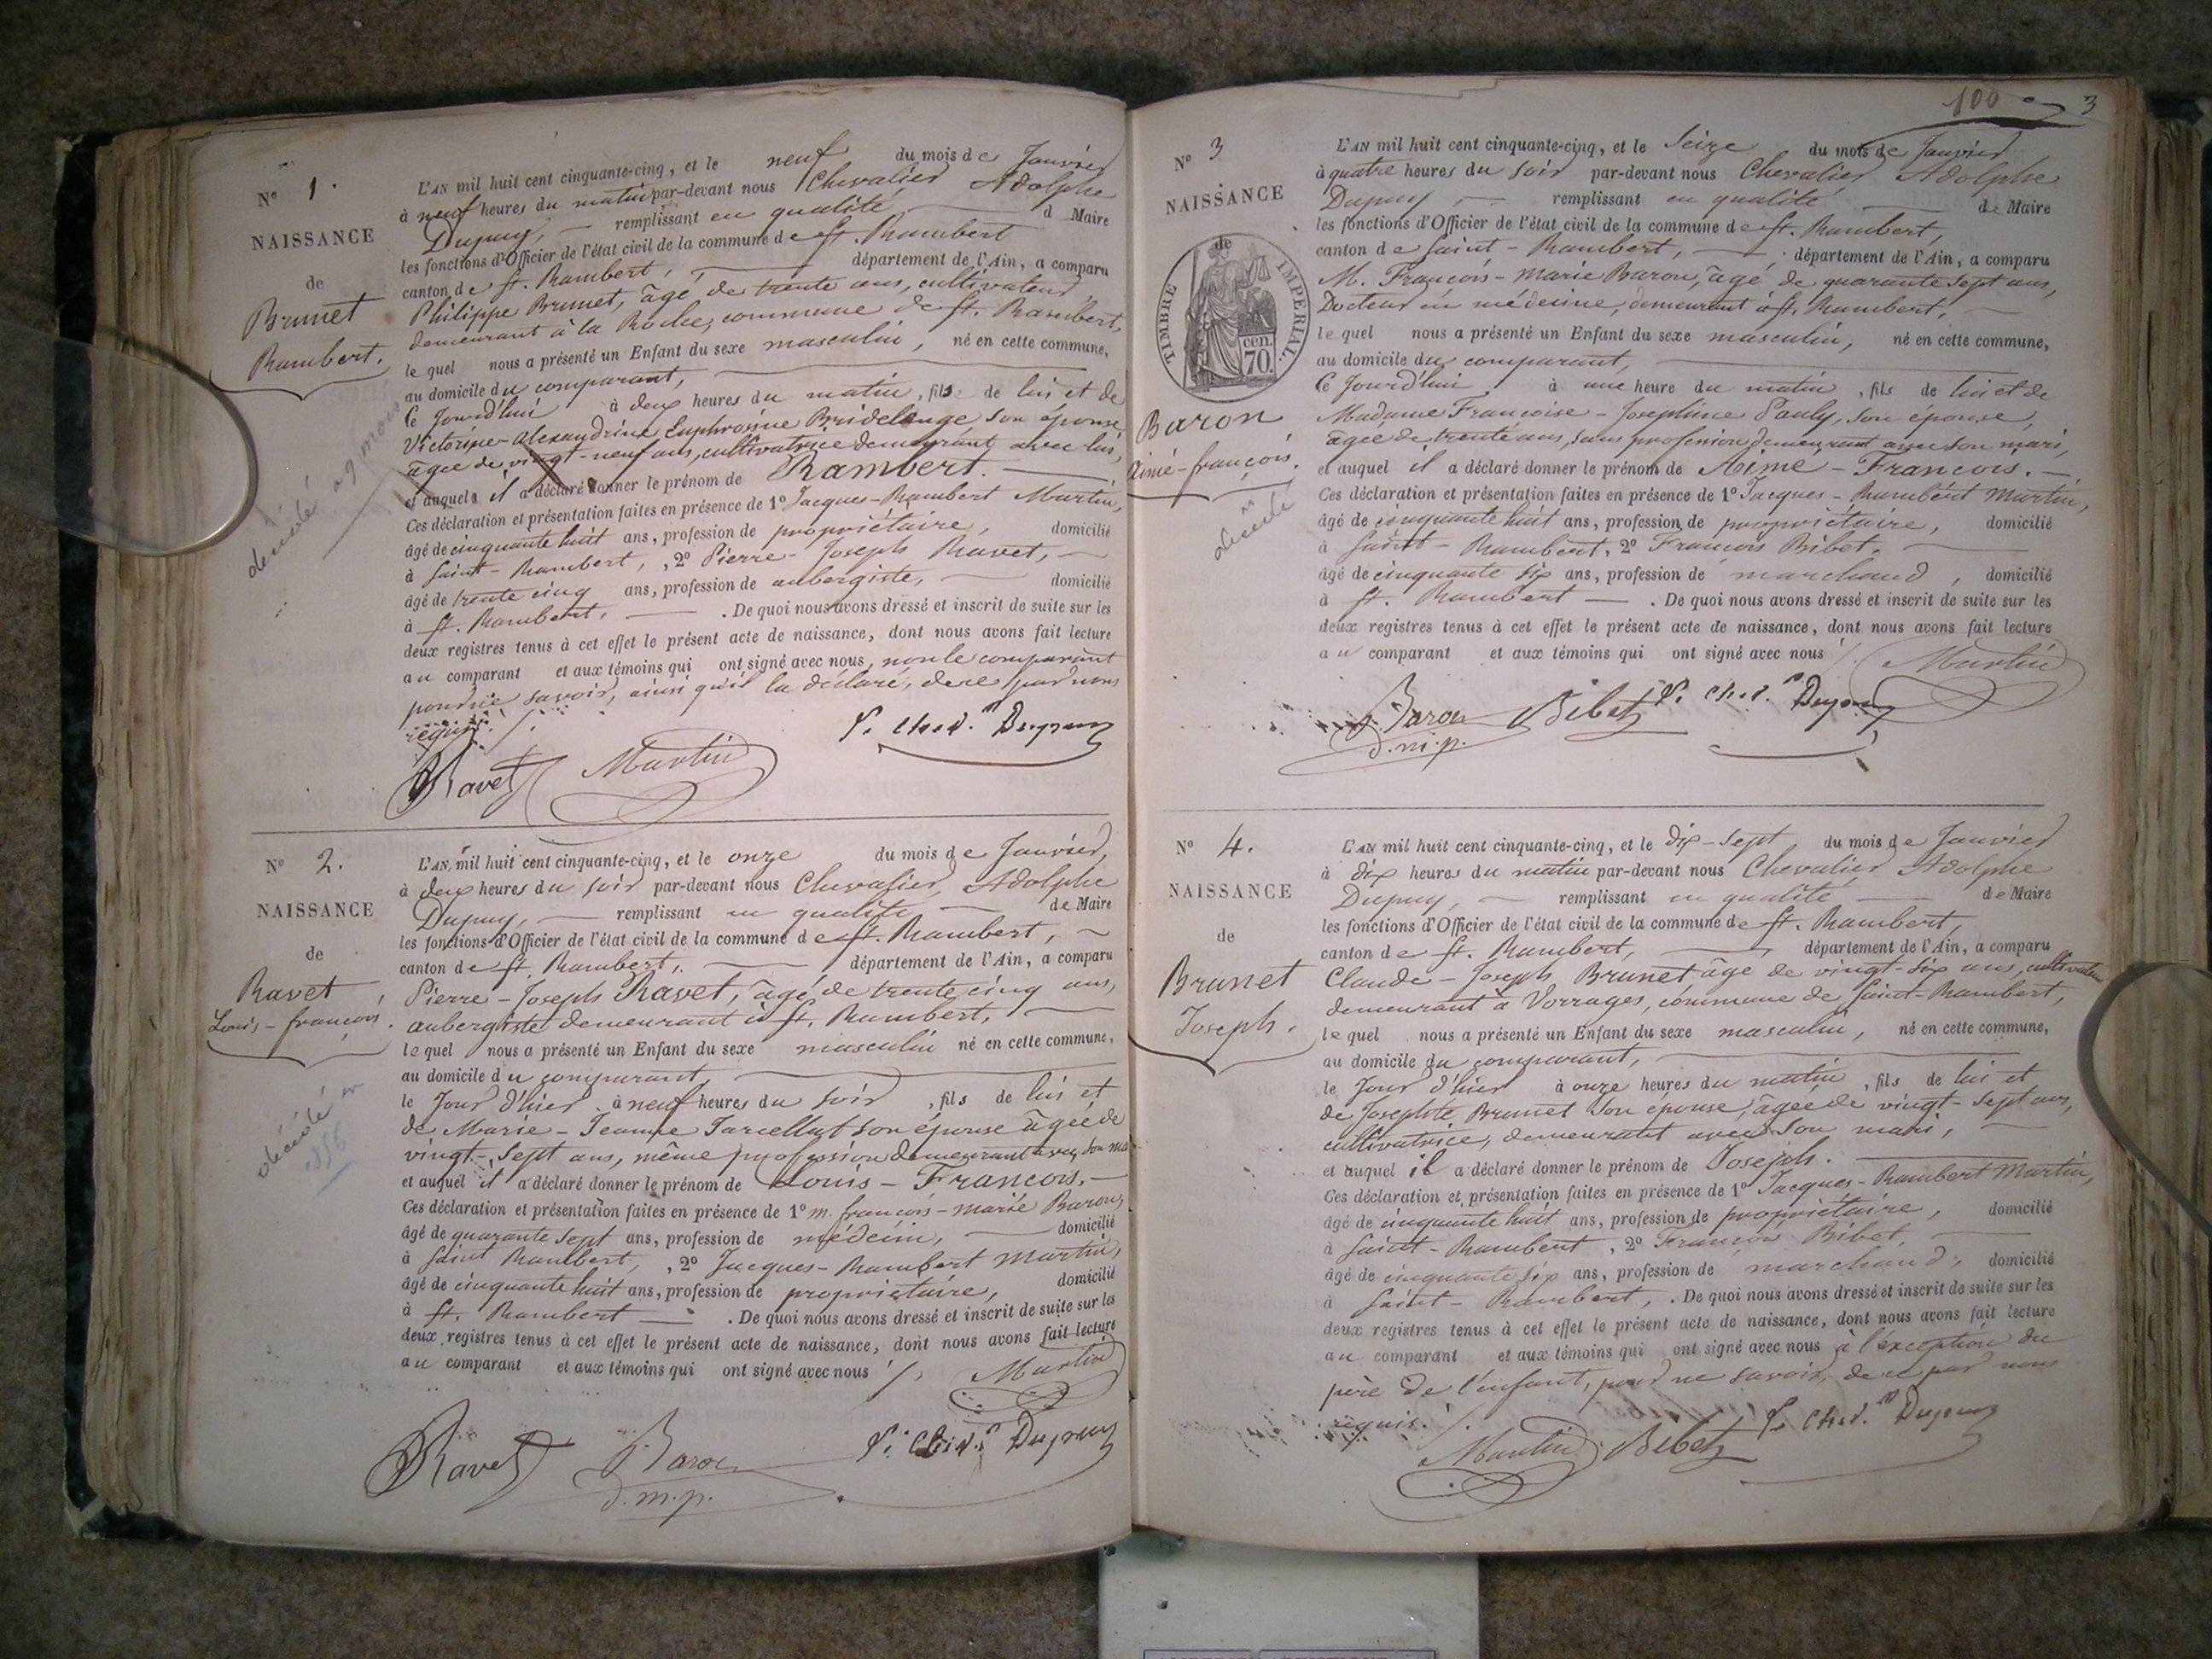 Nº 1.
NAISSANCE
de
Brunet
Rambert.
décédé
L'AN mil huit cent cinquante-cinq, et le neuf du mois de Janvier
à neuf heures du matin par-devant nous Chevalier Adolphe
Dupuy, remplissant en qualité d Maire
les fonctions d'Officier de l'état civil de la commune de st. Rambert
canton de st. Rambert, département de l'Ain, a comparu
Philippe Brunet, âgé de trente ans, cultivateur
demeurant à la Roche, commune de st. Rambert,
le quel nous a présenté un Enfant du sexe masculin, né en cette commune,
au domicile du comparant,
Ce Jourd'hui à deux heures du matin, fils de lui et de
Victorine-Alexandrine Euphrosine Bridelange son épouse
âgée de vingt-neuf ans, cultivatrice demeurant avec lui,
et auquel il a déclaré donner le prénom de Rambert.
Ces déclaration et présentation faites en présence de 1º Jacques-Rambert Martin,
âgé de cinquante huit ans, profession de propriétaire, domicilié
à Saint-Rambert, 2º Pierre-Joseph Ravet,
âgé de trente cinq ans, profession de aubergiste, domicilié
à st. Rambert, . De quoi nous avons dressé et inscrit de suite sur les
deux registres tenus à cet effet le présent acte de naissance, dont nous avons fait lecture
au comparant et aux témoins qui ont signé avec nous, non le comparant
pour ne savoir, ainsi qu'il la déclaré, de ce par nous
requis ./.
P. Chev. Dupuy
Ravet Martin
Nº 2.
NAISSANCE
de
Ravet
Louis-françois.
décédé
1856
L'AN mil huit cent cinquante-cinq, et le onze du mois de Janvier,
à deux heures du soir par-devant nous Chevalier Adolphe
Dupuy, remplissant en qualité de Maire
les fonctions d'Officier de l'état civil de la commune de st. Rambert,
canton de st. Rambert, département de l'Ain, a comparu
Pierre-Joseph Ravet, âgé de trente cinq ans,
aubergiste demeurant à st. Rambert,
le quel nous a présenté un Enfant du sexe masculin né en cette commune,
au domicile du comparant
le Jour d'hier à neuf heures du soir, fils de lui et
de Marie-Jeanne Jarcellat son épouse âgée de
vingt-sept ans, même profession demeurant avec son mari
et auquel il a déclaré donner le prénom de Louis-François.
Ces déclaration et présentation faites en présence de 1º m. françois-marie Baron,
âgé de quarante sept ans, profession de médecin, domicilié
à Saint Rambert, 2º Jacques-Rambert Martin,
âgé de cinquante huit ans, profession de propriétaire, domicilié
à st. Rambert . De quoi nous avons dressé et inscrit de suite sur les
deux registres tenus à cet effet le présent acte de naissance, dont nous avons fait lecture
au comparant et aux témoins qui ont signé avec nous ./. Martin
Ravet Baron P. Chev. Dupuy
d.m.p.
100 3
Nº 3
NAISSANCE
TIMBRE de IMPERIAL
cen.
70.
Baron
Aimé-françois.
décédé
L'AN mil huit cent cinquante-cinq, et le Seize du mois de Janvier
à quatre heures du soir par-devant nous Chevalier Adolphe
Dupuy, remplissant en qualité de Maire
les fonctions d'Officier de l'état civil de la commune de st. Rambert,
canton de Saint-Rambert, département de l'Ain, a comparu
M. François-Marie Baron, âgé de quarante sept ans,
Docteur en médecine, demeurant à st. Rambert,
le quel nous a présenté un Enfant du sexe masculin, né en cette commune,
au domicile du comparant,
Ce Jourd'hui à une heure du matin, fils de lui et de
Madame Françoise-Joséphine Pauly, son épouse,
âgée de trente ans, sans profession demeurant avec son mari,
et auquel il a déclaré donner le prénom de Aimé-François.
Ces déclaration et présentation faites en présence de 1º Jacques-Rambert Martin,
âgé de cinquante huit ans, profession de propriétaire, domicilié
à Saint-Rambert, 2º François Bibet,
âgé de cinquante six ans, profession de marchand, domicilié
à st. Rambert . De quoi nous avons dressé et inscrit de suite sur les
deux registres tenus à cet effet le présent acte de naissance, dont nous avons fait lecture
au comparant et aux témoins qui ont signé avec nous ./. Martin
Baron Bibet P. Chev. Dupuy
d.m.p.
Nº 4.
NAISSANCE
de
Brunet
Joseph.
L'AN mil huit cent cinquante-cinq, et le dix-sept du mois de Janvier
à dix heures du matin par-devant nous Chevalier Adolphe
Dupuy, remplissant en qualité de Maire
les fonctions d'Officier de l'état civil de la commune de st. Rambert,
canton de st. Rambert, département de l'Ain, a comparu
Claude-Joseph Brunet âgé de vingt-six ans, cultivateur
demeurant à Vorrages, commune de Saint-Rambert,
le quel nous a présenté un Enfant du sexe masculin, né en cette commune,
au domicile du comparant,
le Jour d'hier à onze heures du matin, fils de lui et
de Josephte Brunet son épouse, âgée de vingt-sept ans,
cultivatrice, demeurant avec son mari,
et auquel il a déclaré donner le prénom de Joseph.
Ces déclaration et présentation faites en présence de 1º Jacques-Rambert Martin,
âgé de cinquante huit ans, profession de propriétaire, domicilié
à Saint-Rambert, 2º François Bibet,
âgé de cinquante six ans, profession de marchand, domicilié
à Saint-Rambert, . De quoi nous avons dressé et inscrit de suite sur les
deux registres tenus à cet effet le présent acte de naissance, dont nous avons fait lecture
au comparant et aux témoins qui ont signé avec nous à l'exception du
père de l'enfant, pour ne savoir, de ce par nous
requis ./.
Martin Bibet P. Chev. Dupuy